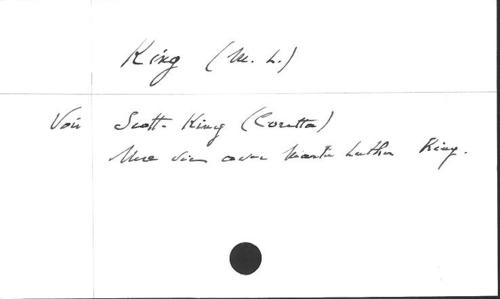 King (M. L.)
Voir Scott-King (Coretta)
Une vie avec Martin Luther King.